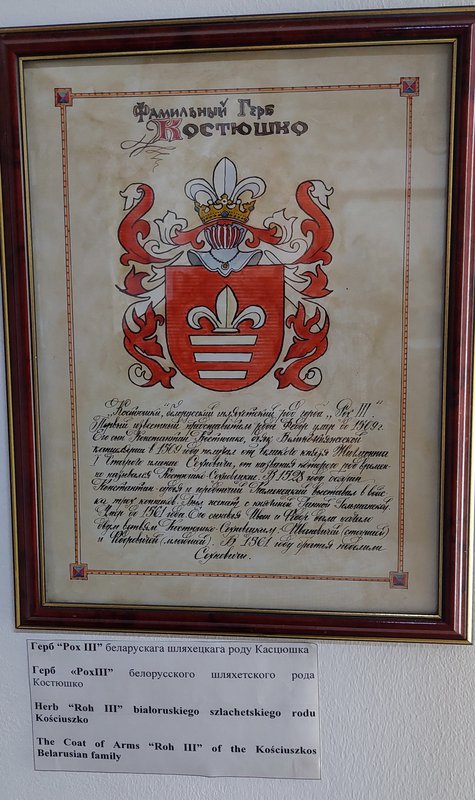 Фамильный Герб
Костюшко
„Костюшки", белорусский шляхетский род герба „Рох III".
Первый известный представитель рода Федор умер до 1509 г.
Его сын Константин Костюшко, дьяк Великокняжеской
канцелярии в 1509 году получил от великого князя Жигимонта
I Старого имение Сехновичи, от названия которого род времен-
но назывался Костюшко-Сехновицкие. В 1528 году
Константин судья и Каменецкий выставил в войс-
ко трех конников. Был женат с княжной Анной Гольшанской
Умер до 1561 года. Его сыновья Иван и Федор дали начало
двум ветвям Костюшко-Сехновицким: Ивановичей (старшей)
и Федоровичей (младшей). В 1561 году братья поделили
Сехновичи.
Герб “Рох III” беларускага шляхецкага роду Касцюшка
Герб «РохIII” белорусского шляхетского рода
Костюшко
Herb “Roh III” białoruskiego szlachetskiego rodu
Kościuszko
The Coat of Arms “Roh III” of the Kościuszkos
Belarusian family